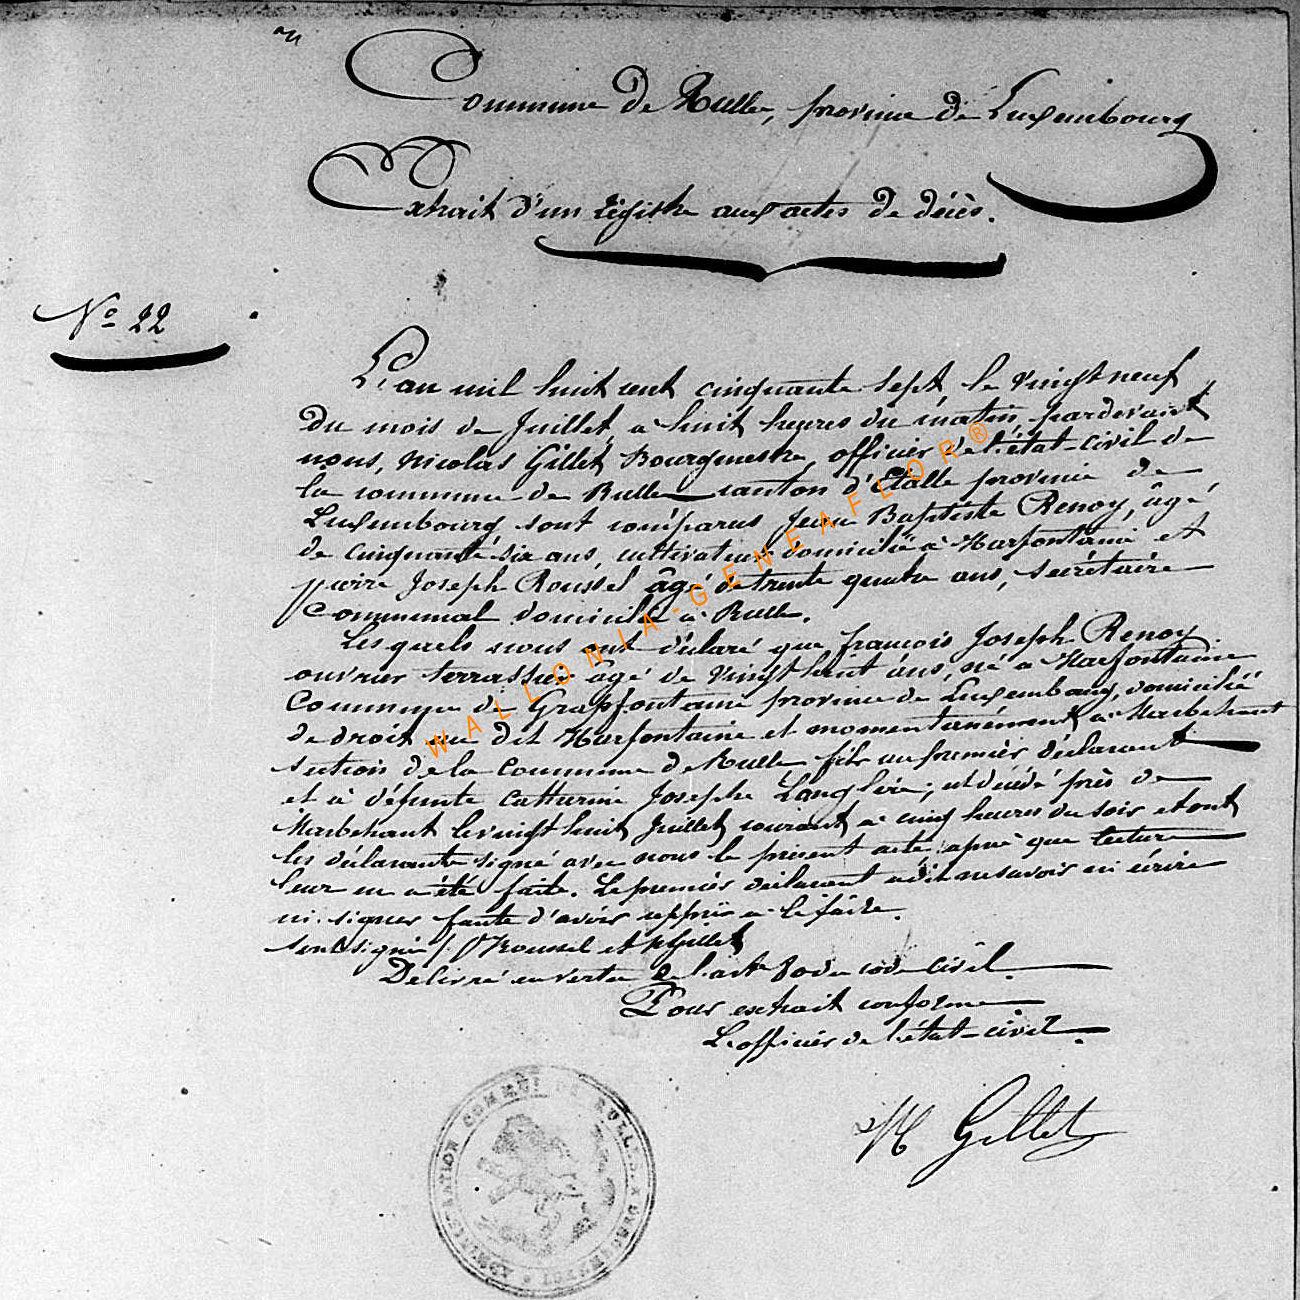 Commune de Rulles, province de Luxembourg
Extrait d'un régistre aux actes de décès.
No 22
L'an mil huit cent cinquante sept le vingt neuf
du mois de Juillet, à huit heures du matin, pardevant
nous, Nicolas Gillet, Bourgmestre, officier de l'état-civil de
la commune de Rulles canton d'Etalle province de
Luxembourg sont comparus Jean Baptiste Renoy, âgé
de cinquante six ans, cultivateur domicilié à Harfontaine et
pierre Joseph Roussel âgé de trente quatre ans, secrétaire
Communal domicilié à Rulles.
Les quels nous ont déclaré que françois Joseph Renoy
ouvrier terrassier âgé de vingt huit ans, né à Harfontaine
Commune de Grapfontaine province de Luxembourg, domicilié
de droit au dit Harfontaine et momentanément à Marbehant
section de la Commune de Rulles fils au premier déclarant
et à défunte Catherine Josephe ; est décédé près de
Marbehant le vingt huit Juillet courant à cinq heures du soir et ont
les déclarants signé avec nous le présent acte après que lecture
leur en a été faite. Le premier déclarant a dit ne savoir ni écrire
ni signer faute d'avoir appris à le faire.
sont signés / P J Roussel et N Gillet
Délivré en vertu de l'art 80 du code civil.
Pour extrait conforme
L'officier de l'état-civil.
N Gillet
ADMINISTRATION COMMUN DE RULLES
WALLONIA-GENEAFLOR®